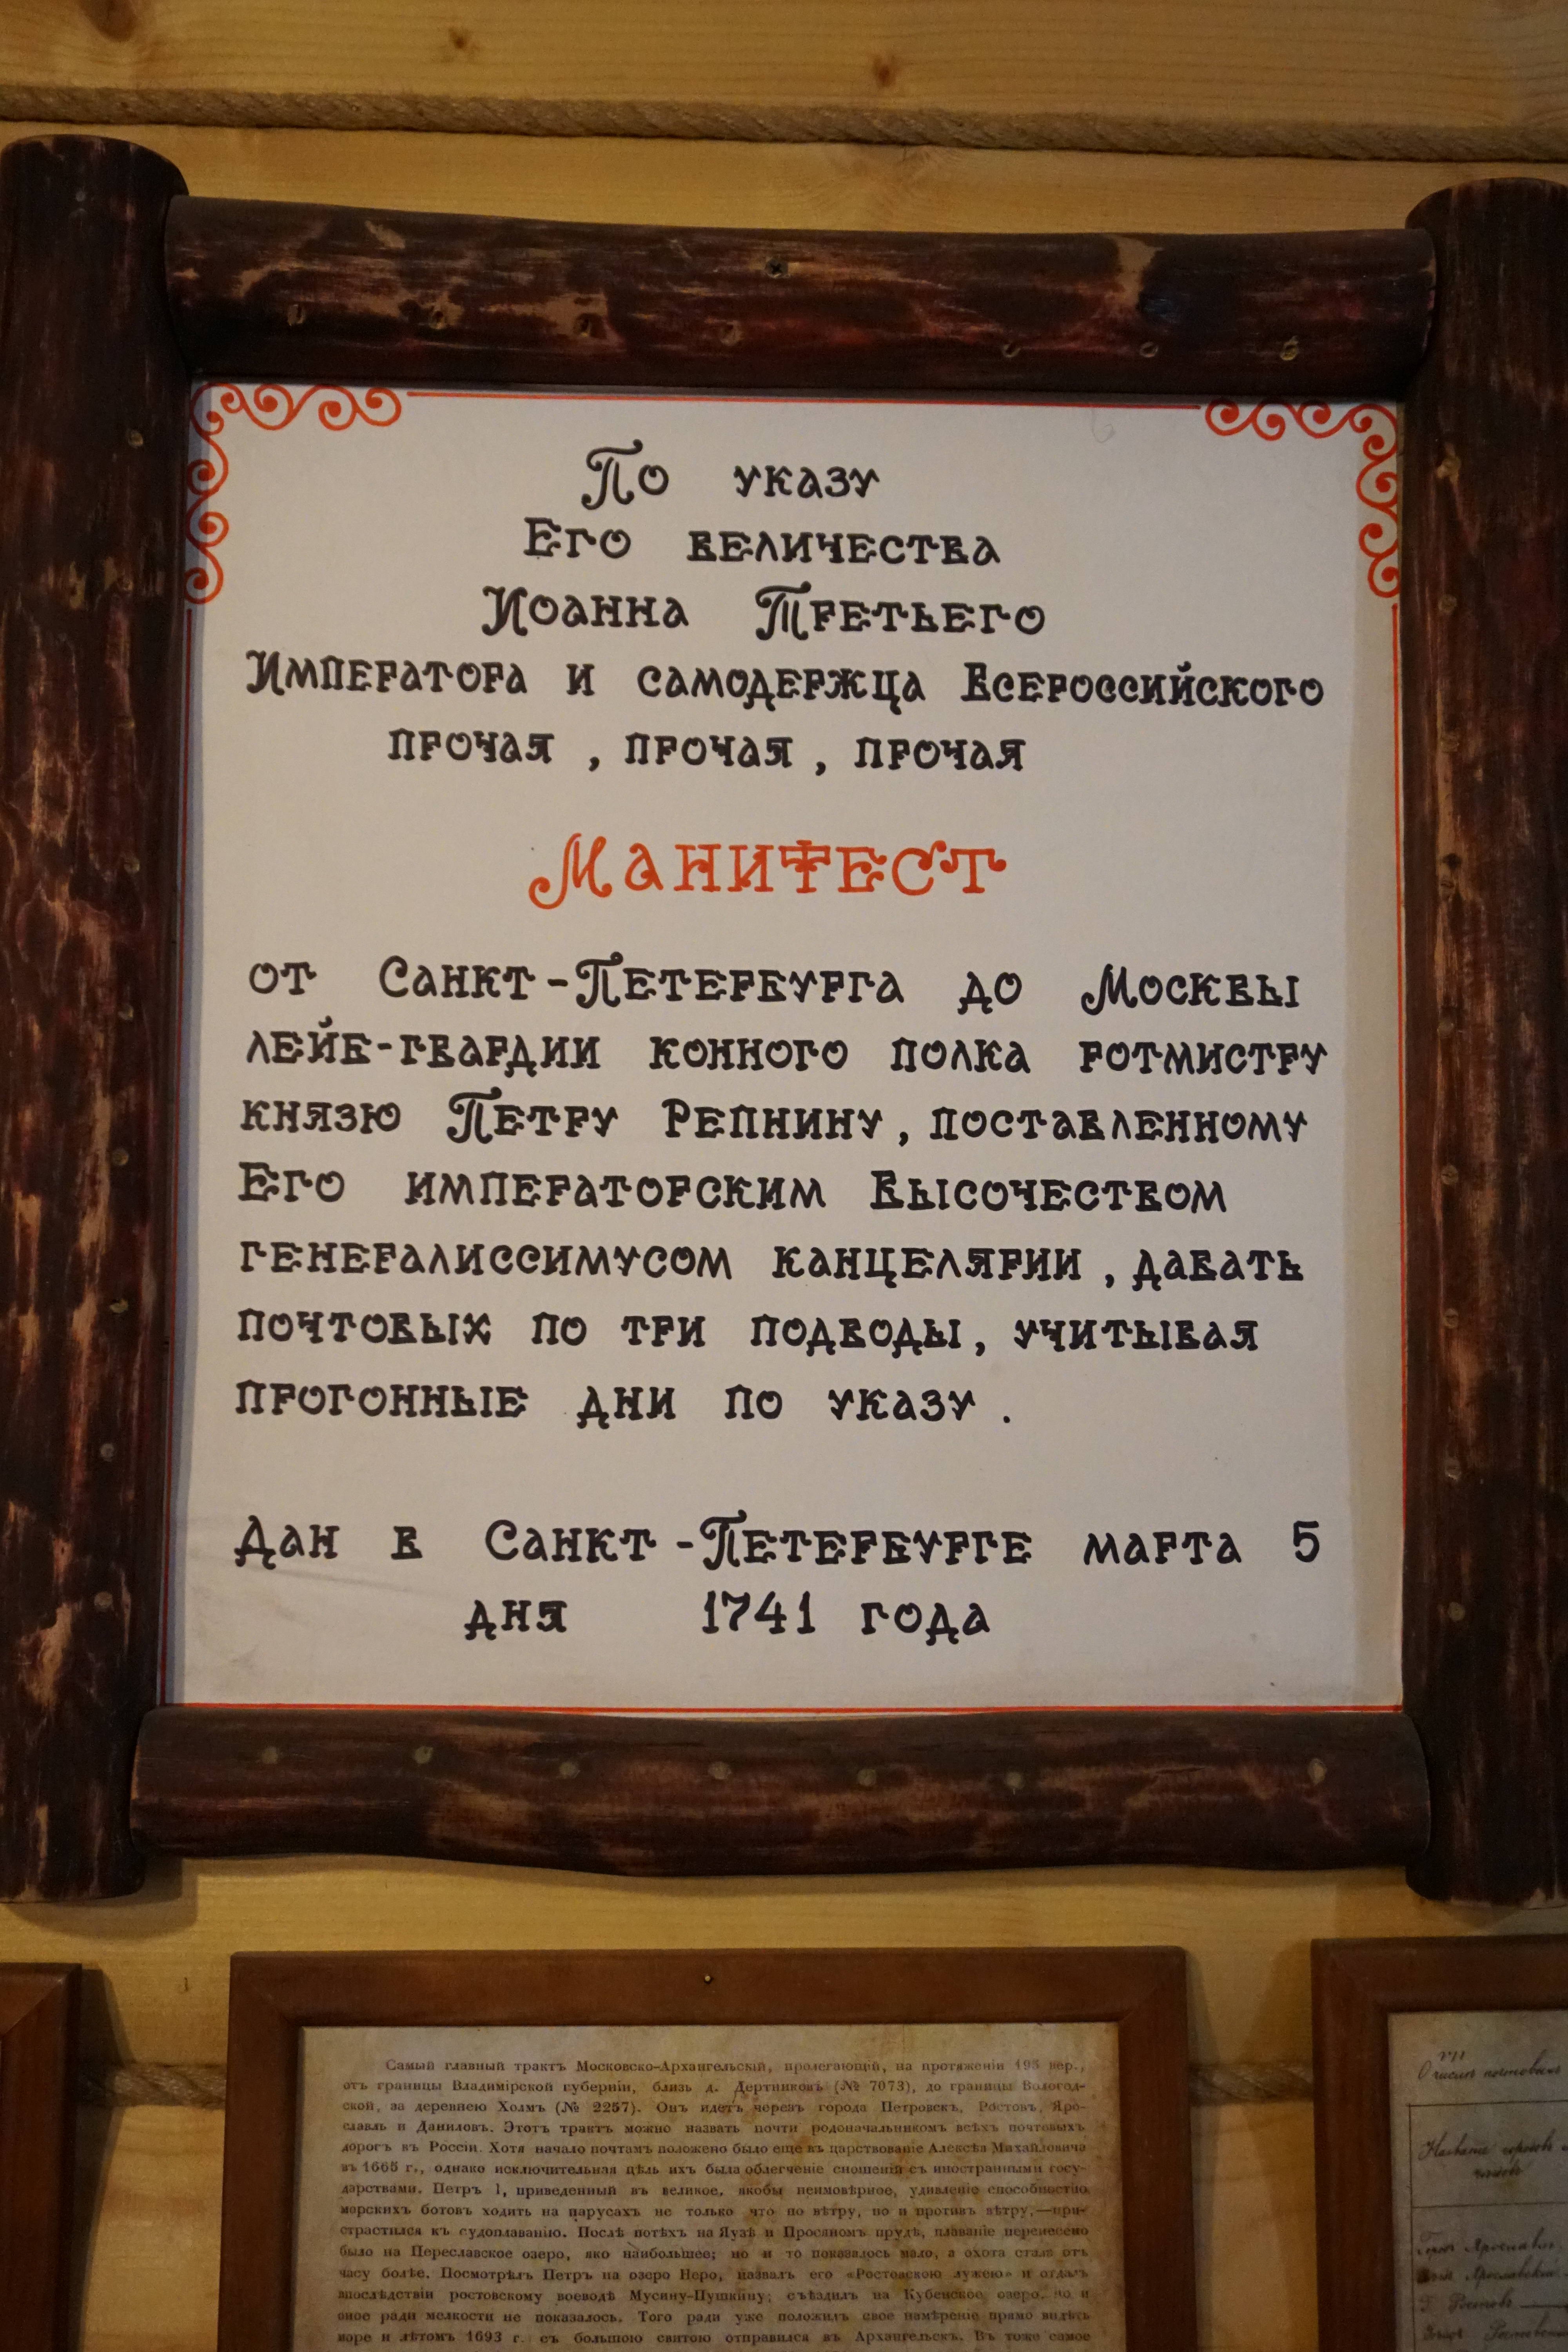 По указу
Его величества
Иоанна Третьего
Императора и самодержца Всероссийского
прочая, прочая, прочая
Манифест
от Санкт-Петербурга до Москвы
лейб-гвардии конного полка ротмистру
князю Петру Репнину, поставленному
Его императорским Высочеством
генералиссимусом канцелярии, давать
почтовых по три подводы, учитывая
прогонные дни по указу.
Дан в Санкт-Петербурге марта 5
дня 1741 года
Самый главный трактъ Московско-Архангельскій, пролегающій, на протяженіи 195 вер.,
отъ границы Владимірской губерніи, близь д. Дертниковъ (№ 7073), до границы Вологод-
ской, за деревнею Холмъ (№ 2257). Онъ идетъ черезъ города Петровскъ, Ростовъ, Яро-
славль и Даниловъ. Этотъ трактъ можно назвать почти родоначальникомъ всѣхъ почтовыхъ
дорогъ въ Россіи. Хотя начало почтамъ положено было еще въ царствованіе Алексѣя Михайловича
въ 1665 г., однако исключительная цѣль ихъ была облегченіе сношеній съ иностранными госу-
дарствами. Петръ 1, приведенный въ великое, якобы неимовѣрное, удивленіе способностію
морскихъ ботовъ ходить на парусахъ не только что по вѣтру, но и противъ вѣтру,—при-
страстился къ судоплаванію. Послѣ потѣхъ на Яузѣ и Просяномъ прудѣ, плаваніе перенесено
было на Переславское озеро, яко наибольшее; но и то показалось мало, а охота стала отъ
часу болѣе. Посмотрѣлъ Петръ на озеро Неро, назвалъ его «Ростовскою лужею» и отдалъ
впослѣдствіи ростовскому воеводѣ Мусину-Пушкину; съѣздилъ на Кубенское озеро, но и
оное ради мелкости не показалось. Того ради уже положилъ свое намѣреніе прямо видѣть
море и лѣтомъ 1693 г. съ большою свитою отправился въ Архангельскъ. Въ тоже самое